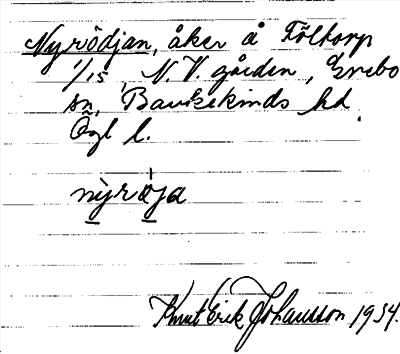 Nyrödjan, åker å Föltorp
1/15, N. V. gården, Grebo
sn, Bankekinds hd
Ögl l.
nỳrø̀ja
Knut Erik Johansson 1934.